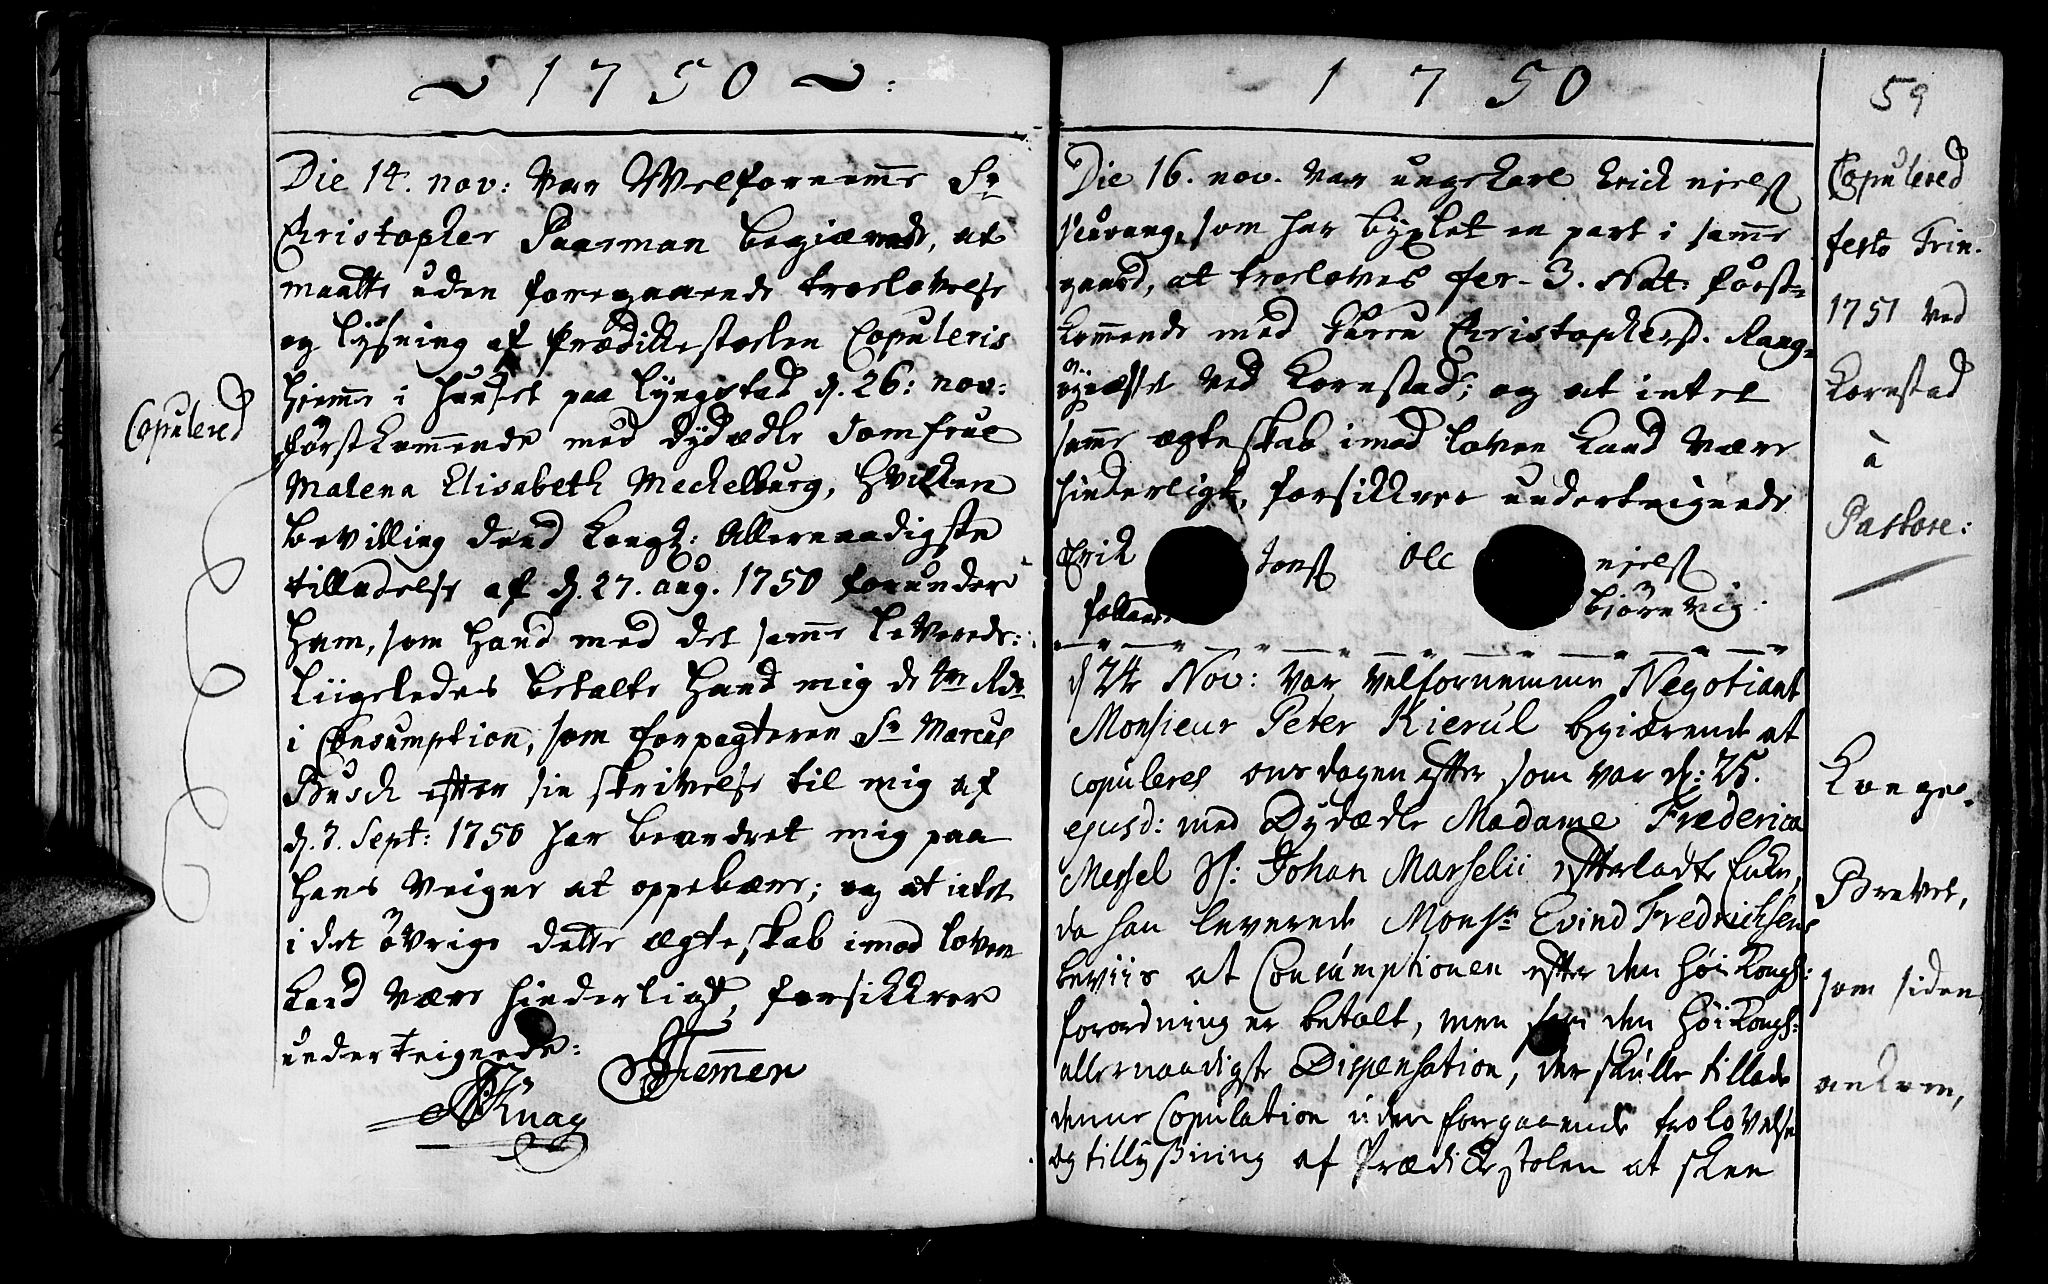 1750
Die 14. nov: var Welfornemme Sr
Christopher Paarman begiærende, at
maatte uden foregaaende troelovelse
og lysning af Prædikestoelen Copuleris
hiemme i Huuset paa Lyngstad d. 26: nov:
førstkommende med Dydædle Jomfrue
Malena Elisabeth Mechelburg, hvilken
bevilling dend Kongl: Allernaadigste
tilladelse af d. 27. aug. 1750 forunder
ham, som hand med det samme leverede:
liigeledes betalte hand mig de
i Consumption, som forpagteren Sr Marcus
Busch efter sin skrivelse til mig af
d. 7. Sept: 1750 har beordret mig paa
hans veigne at oppebære; og at intet
i det øvrige dette ægteskab imod loven
kand være hinderligt, forsikkrer
underteignede:
Knag
Copulered
1750
59
Die 16. nov. var ungekarl Erick niels
som har byxlet en part i samme
gaard, at troeloves fer. 3. Nat. først-
kommende med Christophersd. Rang-
øynæsset ved Kornstad; og at intet
samme ægteskab imod loven kand være
hinderligt, forsikkrer underteignede
Erik Jons Ole niels
bjørnvig:
d 24 Nov: var velfornemme Negotiant
Monsieur Peter Kierul begiærende at
copuleres onsdagen efter som var d: 25.
ejusd: med Dydædle Madame Frederica
Messel Sl: Johan Marselii efterladte Enke,
da han leverede Monsr Evind Fredrichsens
beviis at Consumptionen efter den høi Kongl:
forordning er betalt, men den høi Kongl:
allernaadigste Dispensation, der skulle tillade
denne Copulation uden foregaaende trolovelse
og tillysning af Prædikestolen at skee
Copulered
festo Trin.
1751 ved
Kornstad
à
Pastore:
Konge-
Brevet,
som siden
ankom,